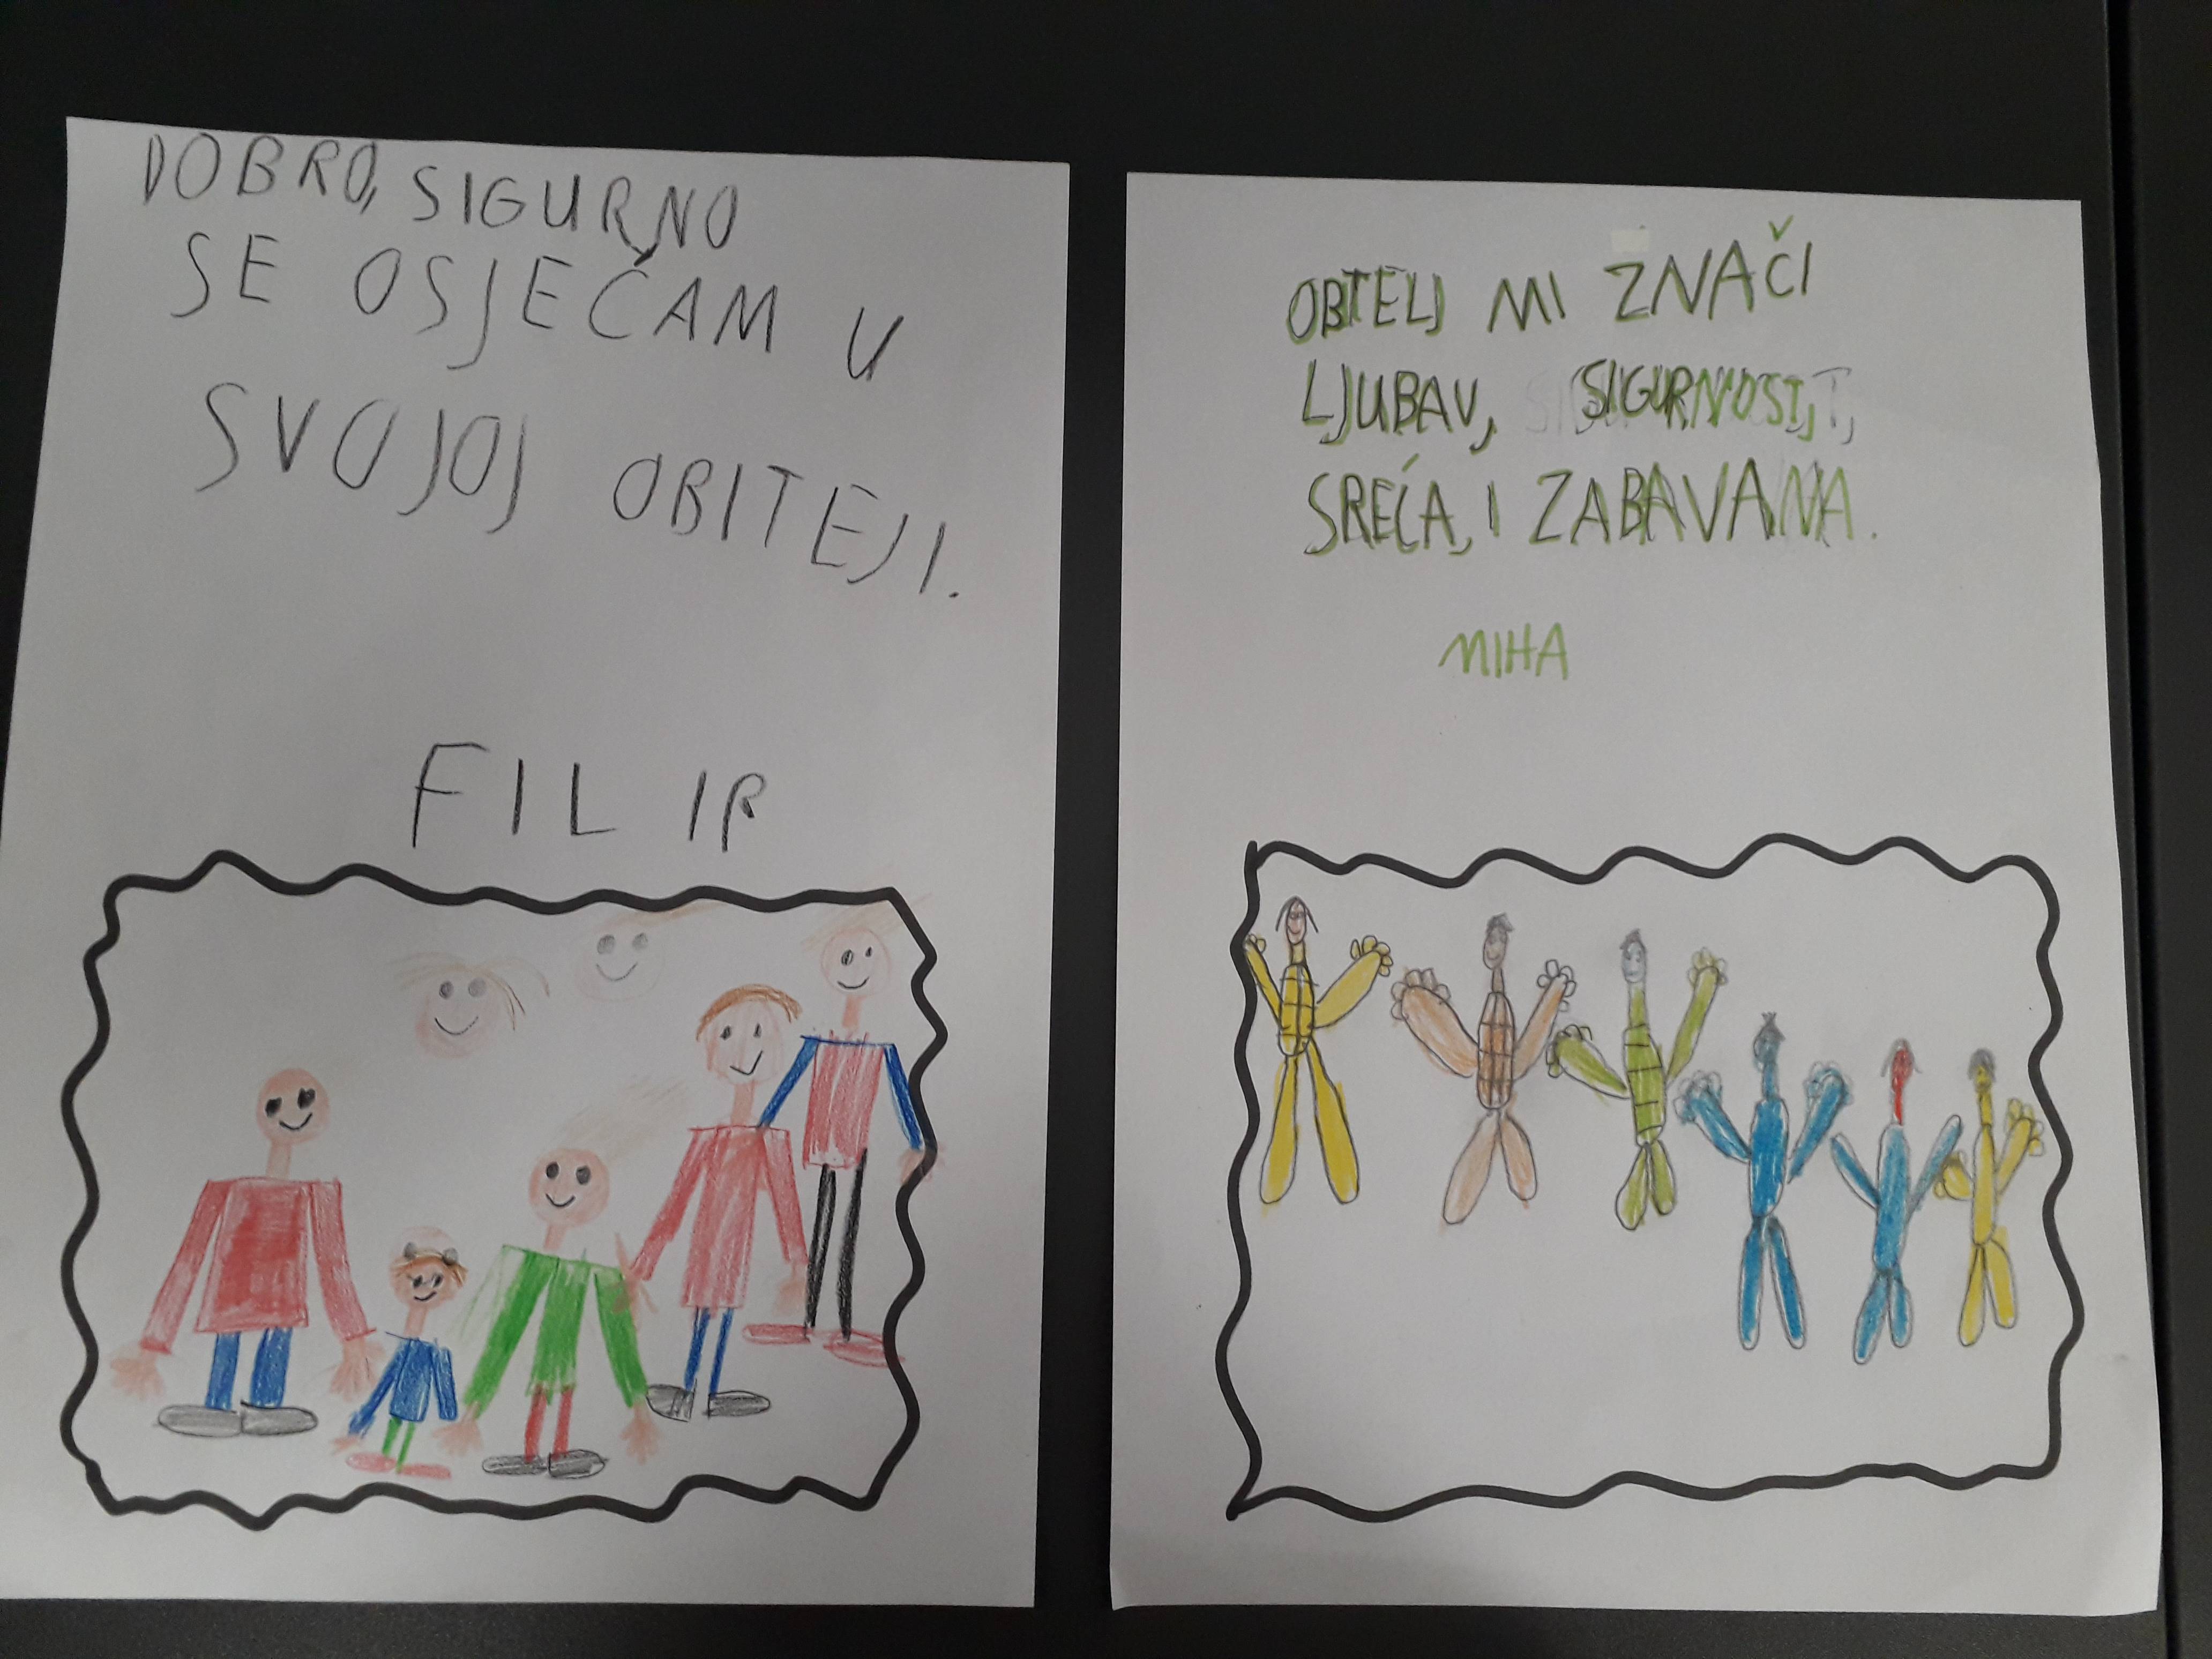 DOBRO, SIGURNO
SE OSJEČAM U
SVOJOJ OBITEJI.
FILIP
OBTELJ MI ZNAČI
LJUBAV, SIGURNOST,
SREĆA, I ZABAVANA.
MIHA